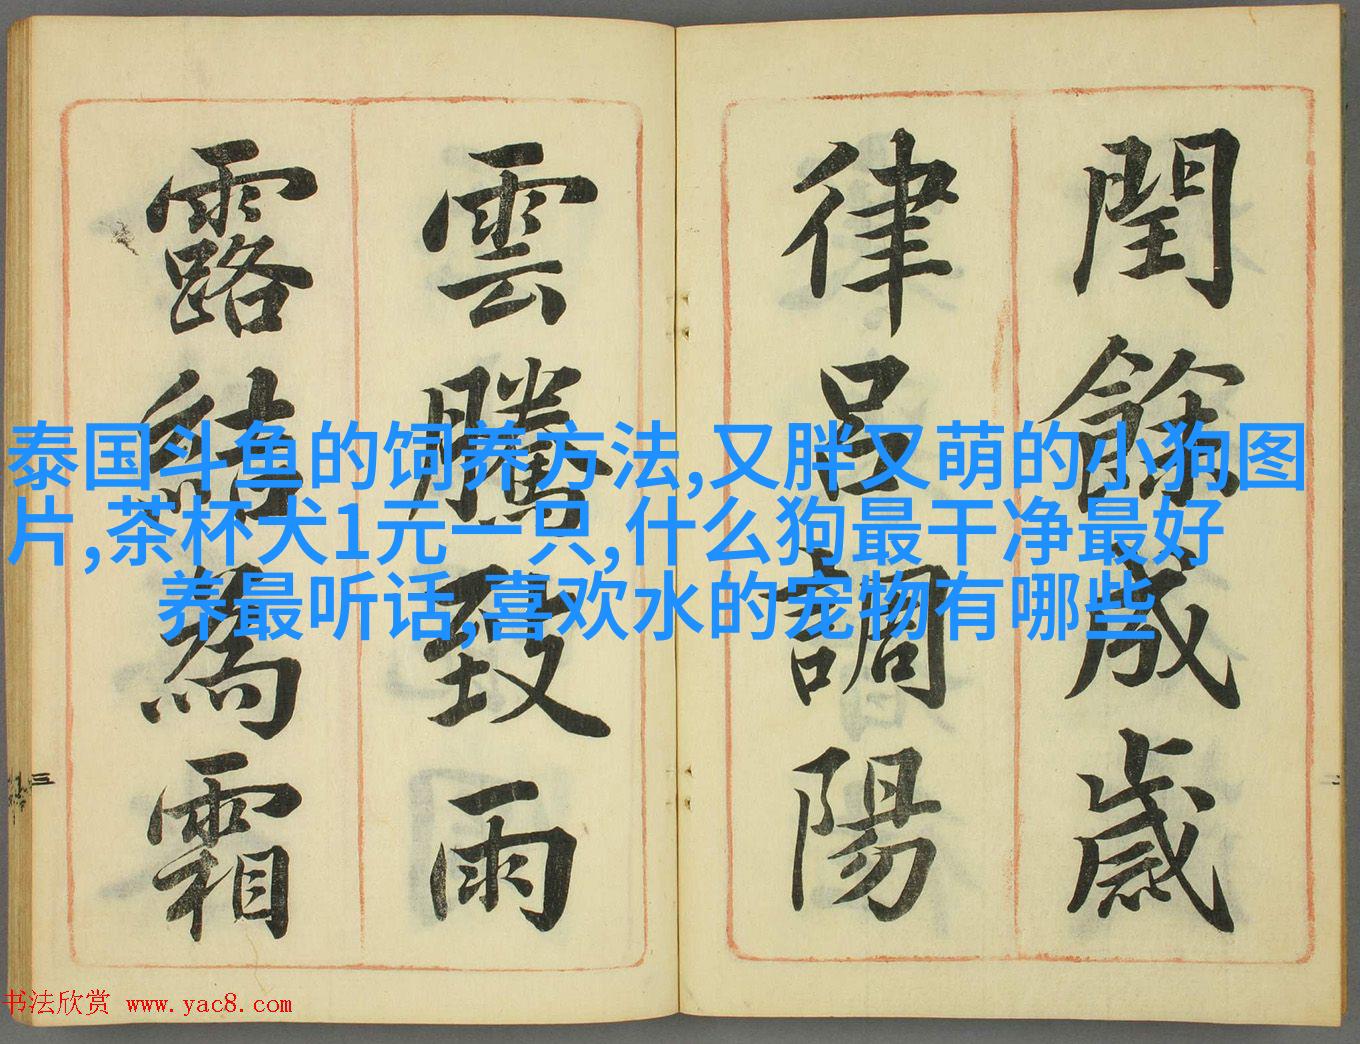 閏餘成歲
律呂調陽
雲騰致雨
露結為霜
泰国斗鱼的饲养方法,又胖又萌的小狗图
片,茶杯犬1元一只,什么狗最干净最好
养最听话,喜欢水的宠物有哪些
三
二
书法欣赏 www.yac8.com